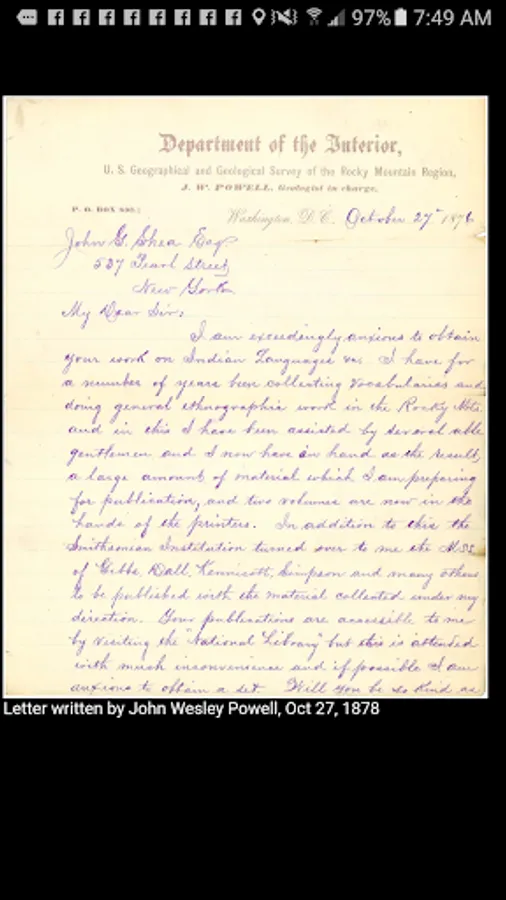 97% 7:49 AM
Department of the Interior,
U. S. Geographical and Geological Survey of the Rocky Mountain Region,
J. W. POWELL, Geologist in charge.
P. O. BOX
Washington, D. C. October 27th 1876
John G. Shea Esq
537 Pearl Street
New York
My Dear Sir:
I am exceedingly anxious to obtain
your work on Indian Languages &c. I have for
a number of years been collecting vocabularies and
doing general ethnographic work in the Rocky Mts.
and in this I have been assisted by several able
gentlemen and I now have on hand as the result,
a large amount of material which I am preparing
for publication, and two volumes are now in the
hands of the printers. In addition to this the
Smithsonian Institution turned over to me the MSS
of Gibbs, Dall, Kennicott, Simpson and many others
to be published with the material collected under my
direction. Your publications are accessible to me
by visiting the "National Library" but this is attended
with much inconvenience and if possible I am
anxious to obtain a set. Will you be so kind as
Letter written by John Wesley Powell, Oct 27, 1878